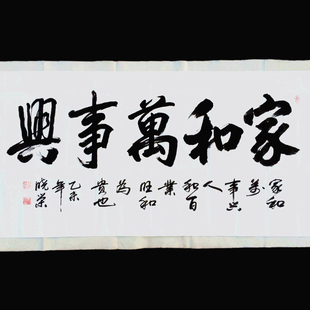 家和萬事興
家和
萬
事兴
人
和百
業
旺和
為
貴也
乙未
年
晓荣